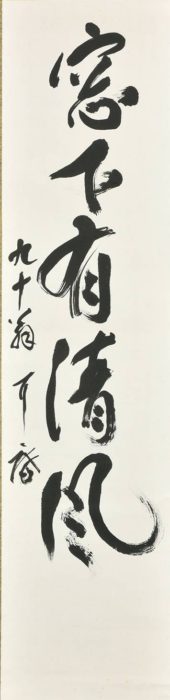 窓下有清風
九十翁